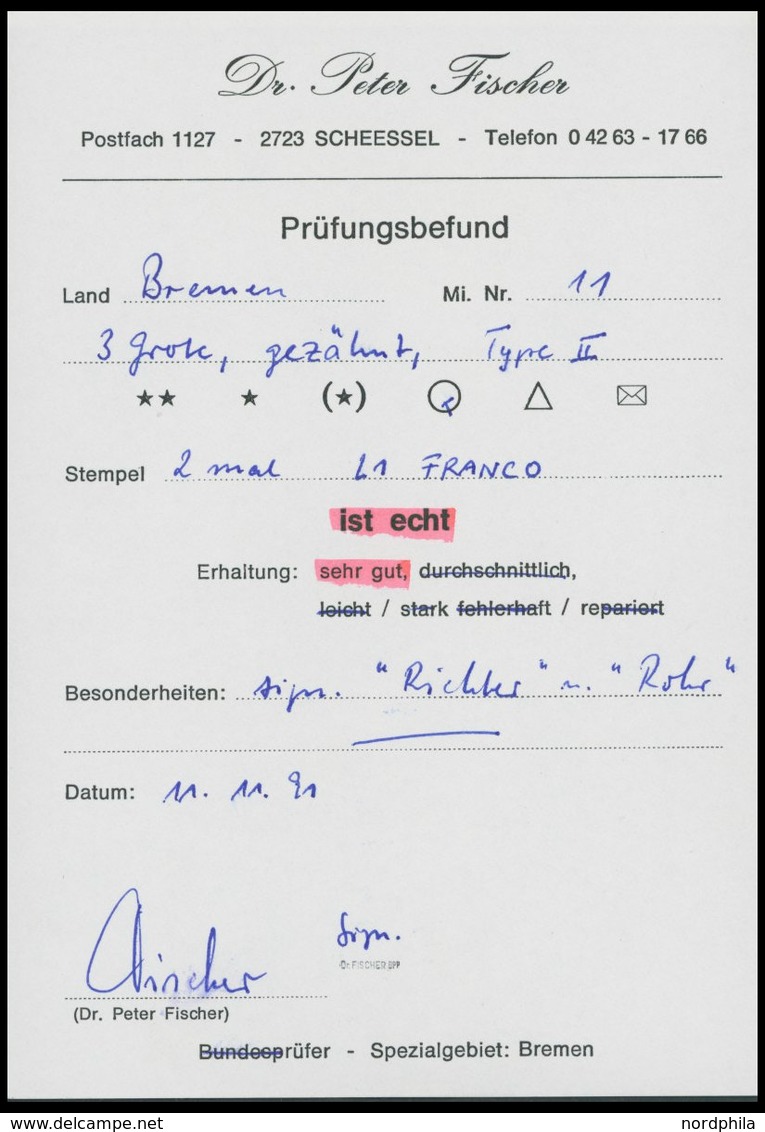 Dr. Peter Fischer
Postfach 1127 - 2723 SCHEESSEL - Telefon 0 42 63 - 17 66
Prüfungsbefund
Land Bremen Mi. Nr. 11
3 Grote, gezähnt, Type II
★★ ★ (★)
Stempel 2 mal L1 FRANCO
ist echt
Erhaltung: sehr gut, durchschnittlich,
leicht / stark fehlerhaft / repariert
Besonderheiten: sign. "Richter" u. "Rohr"
Datum: 11. 11. 91
Fischer Sign.
Dr. FISCHER BPP
(Dr. Peter Fischer)
Bundesprüfer - Spezialgebiet: Bremen
www.delcampe.net nordphila